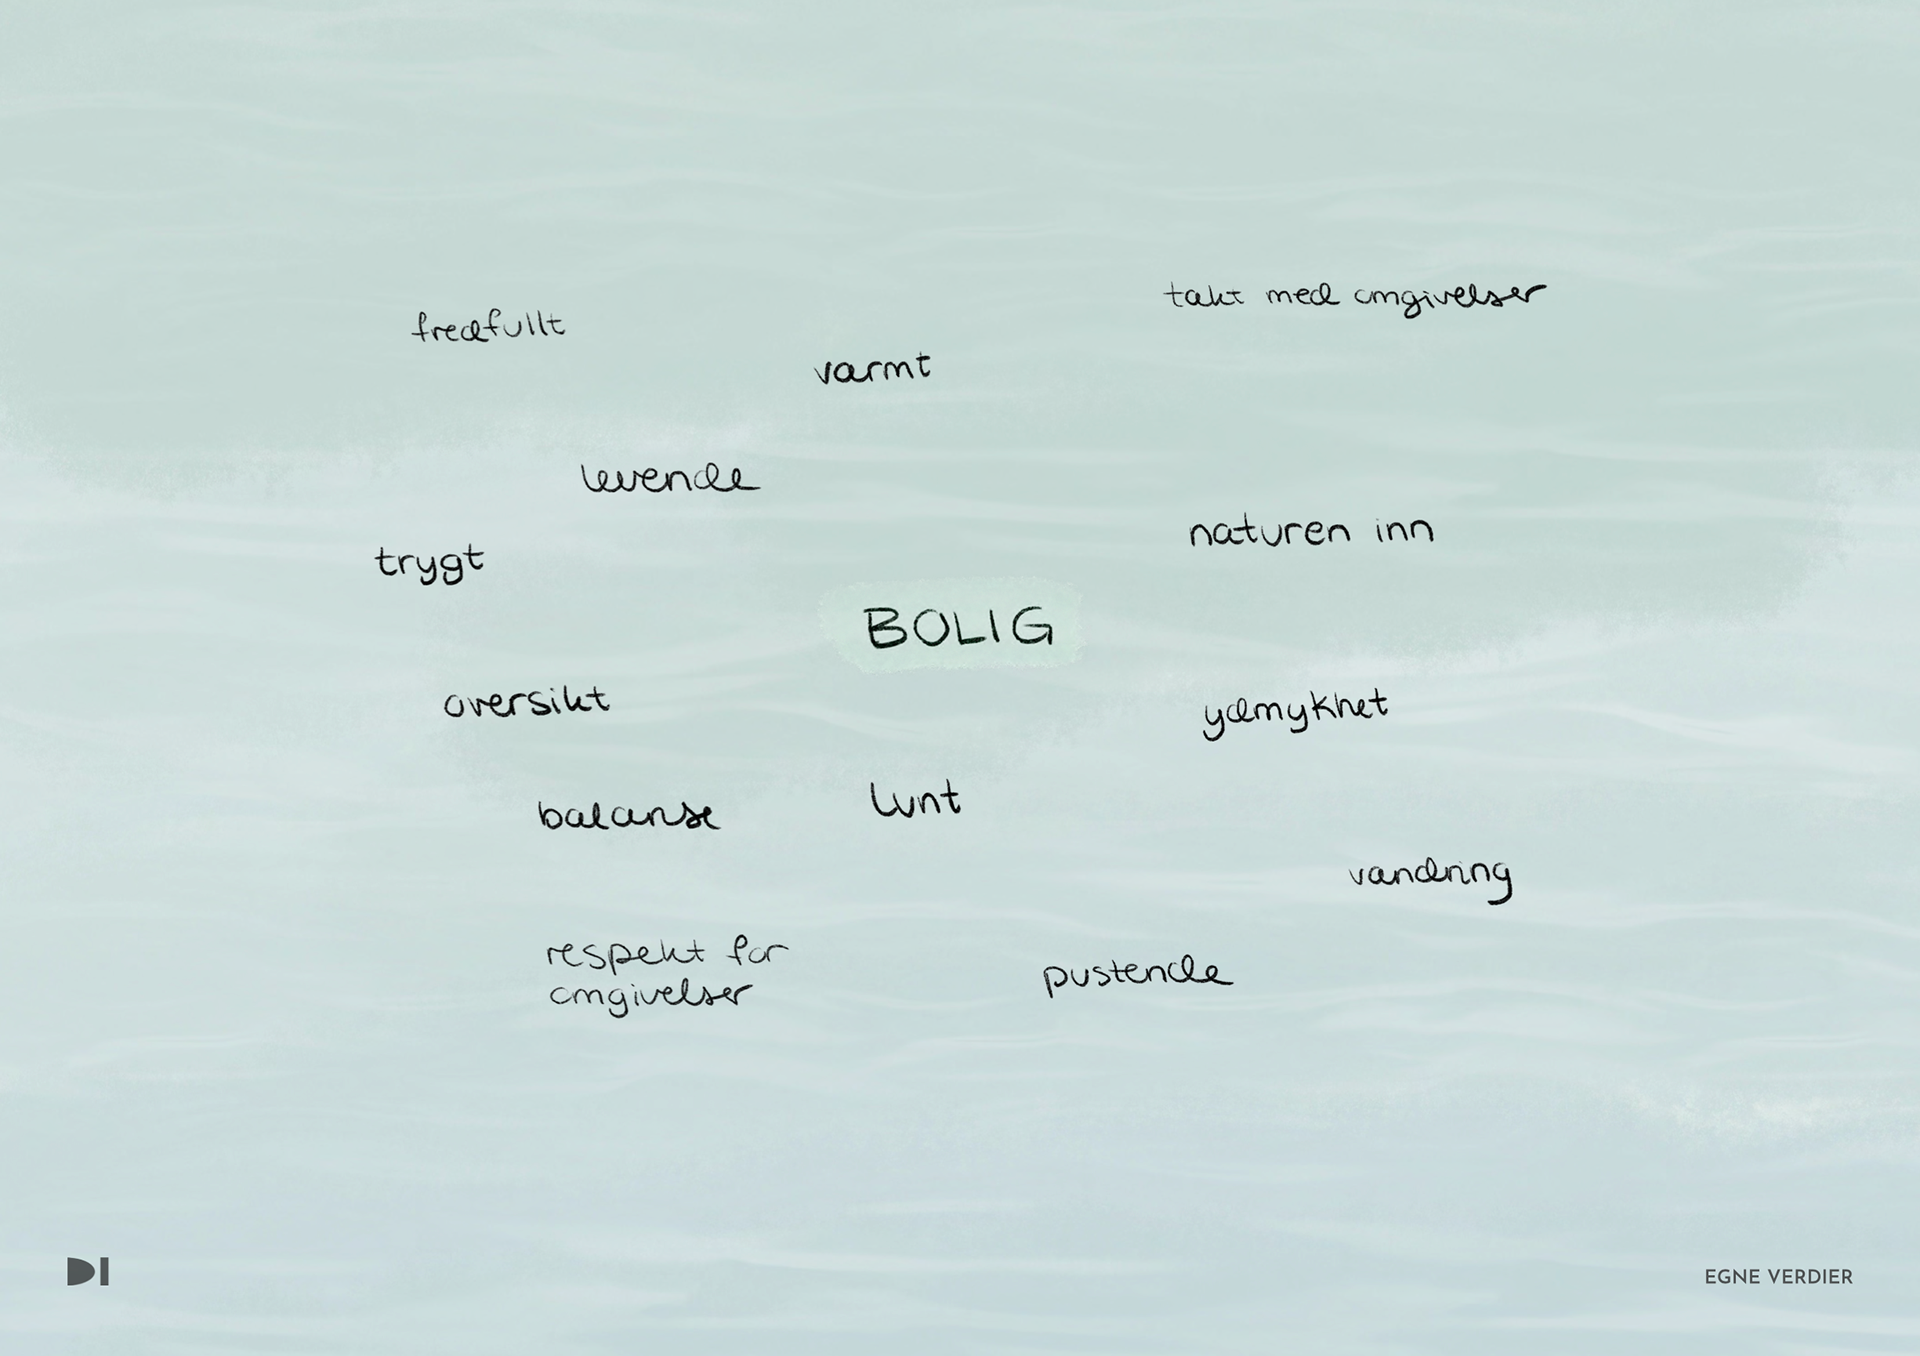 takt med omgivelser
fredfullt
varmt
levende
naturen inn
trygt
BOLIG
oversikt
ydmykhet
balanse
lunt
vandring
respekt for
omgivelser
pustende
DI
EGNE VERDIER